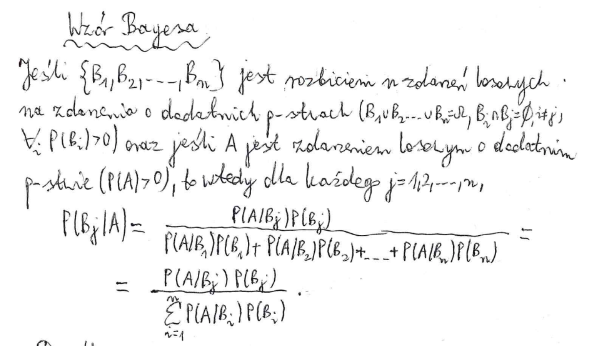 Wzór Bayesa
Jeśli {B₁,B₂,...,Bₙ} jest rozbiciem n zdarzeń losowych
na zdarzenia o dodatnich p-stwach (B₁∪B₂...∪Bₙ=Ω, Bᵢ∩Bⱼ=∅, i≠j,
∀ᵢ P(Bᵢ)>0) oraz jeśli A jest zdarzeniem losowym o dodatnim
p-stwie (P(A)>0), to wtedy dla każdego j=1,2,...,n,
P(Bⱼ|A) = P(A/Bⱼ)P(Bⱼ) / (P(A/B₁)P(B₁)+P(A/B₂)P(B₂)+...+P(A/Bₙ)P(Bₙ)) =
= P(A/Bⱼ)P(Bⱼ) / ∑ᵢ₌₁ⁿ P(A/Bᵢ)P(Bᵢ) .